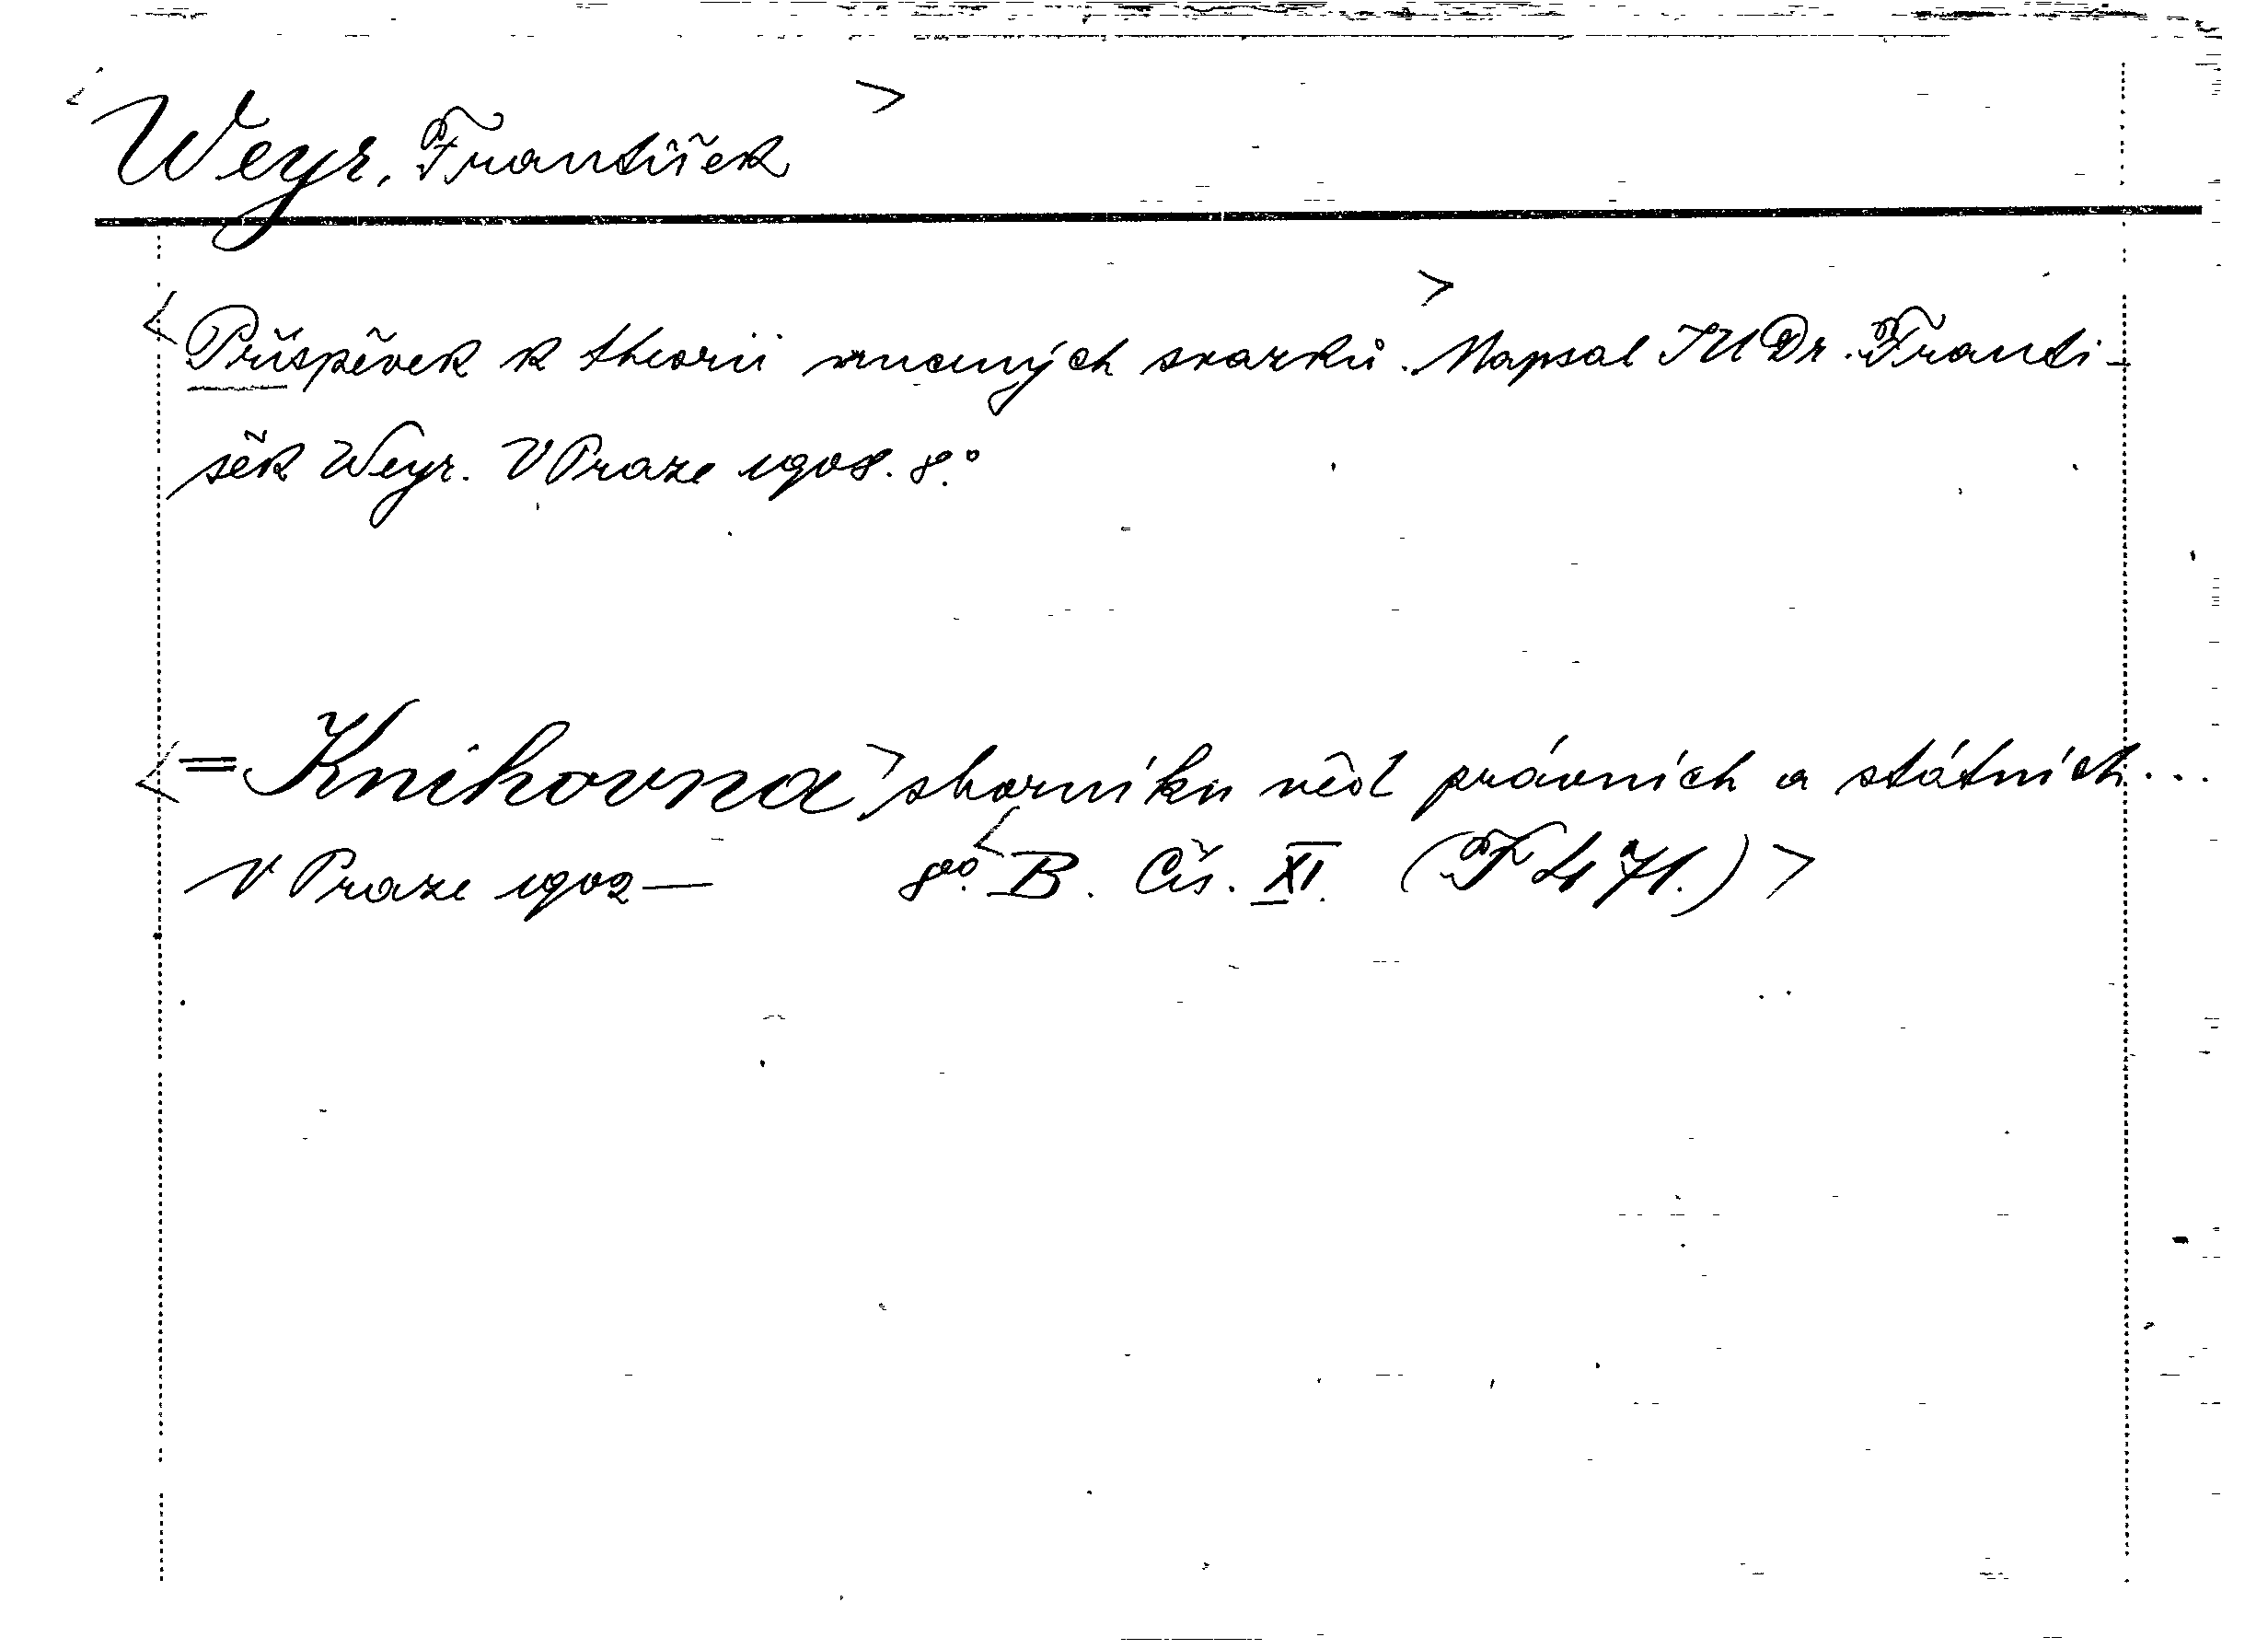 <Weyr, František>
<Příspěvek k theorii nucených svazků.> Napsal JUDr. Franti-
šek Weyr. V Praze 1908. 8.°
<=Knihovna> sborníku věd právních a státních...
V Praze 1902— 8°. <B. Čís. XI. (F 471.)>